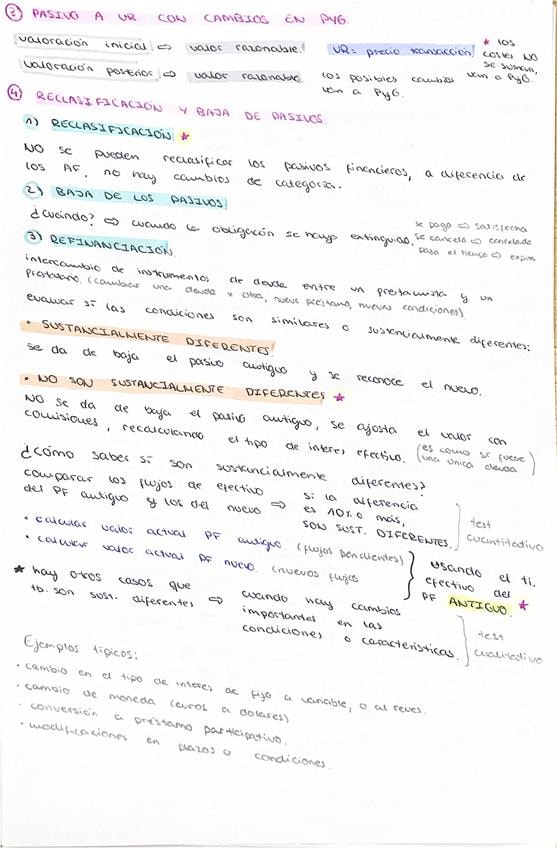 ③ PASIVO A VR. CON CAMBIOS EN PYG.
valoración inicial ⇨ valor razonable. VR= precio transacción ★ los costes NO se suman, van a PyG.
valoración posterior ⇨ valor razonable. los posibles cambios van a PyG.
④ RECLASIFICACIÓN Y BAJA DE PASIVOS.
1) RECLASIFICACIÓN ★
NO se pueden reclasificar los pasivos financieros, a diferencia de
los AF, no hay cambios de categoría.
2) BAJA DE LOS PASIVOS!
¿cuándo? ⇨ cuando la obligación se haya extinguido.
se pago ⇨ satisfecha
se cancela ⇨ cancelado
pasa el tiempo ⇨ expira
3) REFINANCIACIÓN.
intercambio de instrumentos de deuda entre un prestamista y un
prestatario. (cambiar una deuda x otra, nuevo préstamo, nuevas condiciones)
evaluar si las condiciones son similares o sustancialmente diferentes:
• SUSTANCIALMENTE DIFERENTES.
se da de baja el pasivo antiguo y se reconoce el nuevo.
• NO SON SUSTANCIALMENTE DIFERENTES ★
NO se da de baja el pasivo antiguo, se ajusta el valor con
comisiones, recalculando el tipo de interés efectivo. (es como si fuese una única deuda)
¿cómo saber si son sustancialmente diferentes?
comparar los flujos de efectivo
del PF antiguo y los del nuevo ⇨ si la diferencia
es 10% o más,
SON SUST. DIFERENTES.
test
cuantitativo
• calcular valor actual PF antiguo. (flujos pendientes)
• calcular valor actual PF nuevo. (nuevos flujos
usando el ti.
efectivo del
PF ANTIGUO. ★
★ hay otros casos que
tb. son sust. diferentes ⇨ cuando hay cambios
importantes en las
condiciones o características.
test
cualitativo
Ejemplos típicos:
• cambio en el tipo de interés de fijo a variable, o al revés.
• cambio de moneda (euros a dólares)
• conversión a préstamo participativo.
• modificaciones en plazos o condiciones.